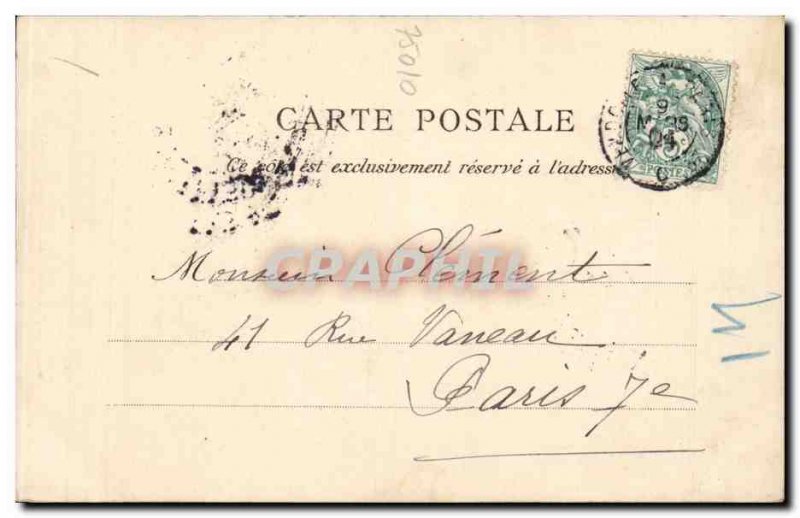 75010
CARTE POSTALE
Ce côté est exclusivement réservé à l'adresse
MARS
5c
POSTES
CPAPHIL
Monsieur Clément
41 Rue Vaneau
Paris 7e